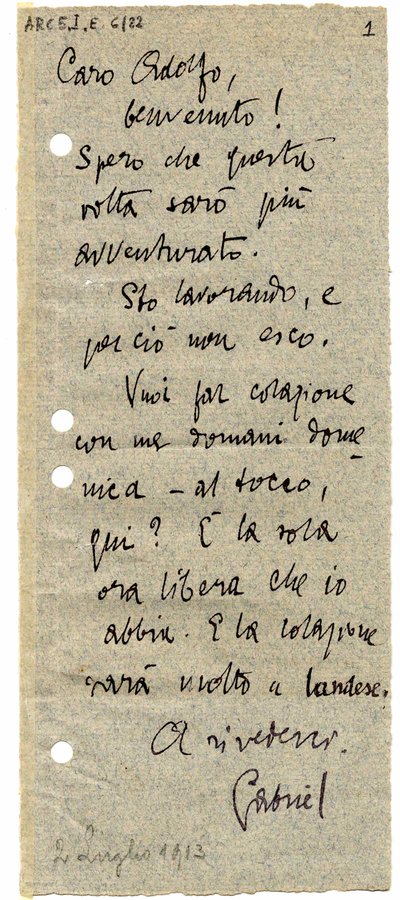 ARCE.I.E. 6/22
1
Caro Adolfo,
benvenuto!
Spero che questa
volta sarò più
avventurato.
Sto lavorando, e
perciò non esco.
Vuoi far colazione
con me domani dome
nica – al tocco,
qui? È la sola
ora libera che io
abbia. E la colazione
sarà molto a landese.
A rivederci.
Gabriel
2 Luglio 1913